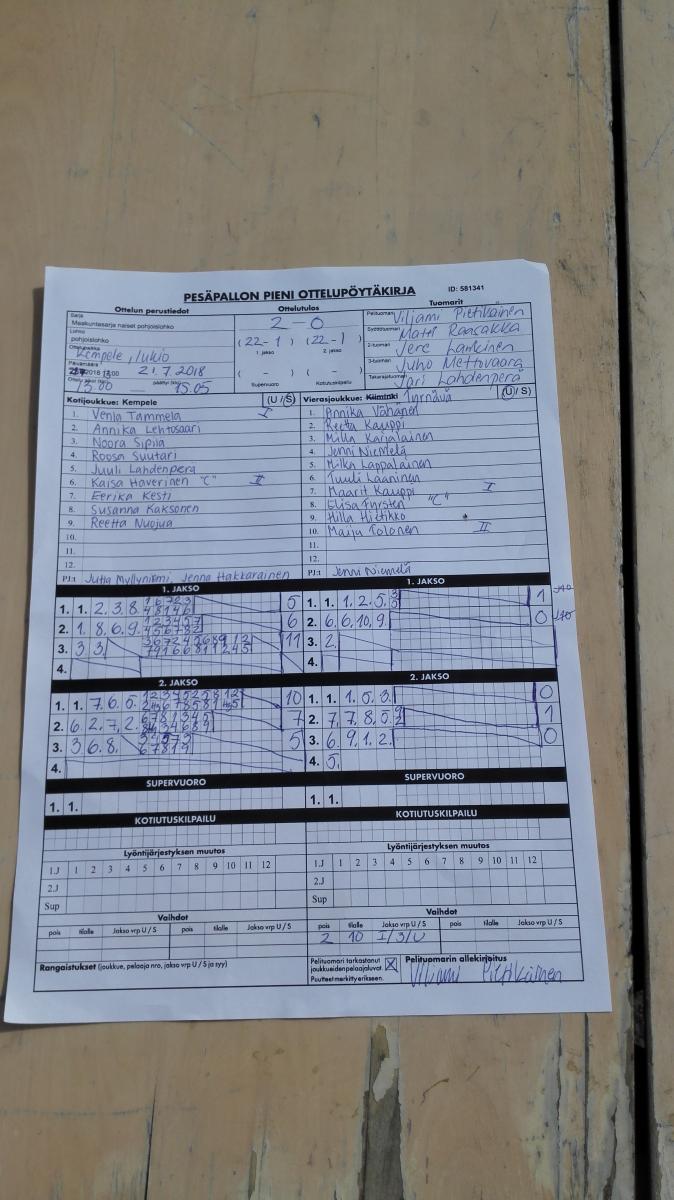 PESÄPALLON PIENI OTTELUPÖYTÄKIRJA ID: 581341
Ottelun perustiedot Ottelutulos Tuomarit
Sarja
Maakuntasarja naiset pohjoislohko
2-0
Pelituomari Viljami Pietikäinen
Lohko
pohjoislohko
(22-1) (22-1)
1. jakso 2. jakso
Syöttötuomari Matti Raasakka
Ottelupaikka
Kempele, lukio
2-tuomari Jere Lamkinen
Päivämäärä
2018 13:00 21.7.2018
( - ) ( - )
Supervuoro Kotiutuskilpailu
3-tuomari Juho Mettovaara
13.00 15.05
Takarajatuomari Jari Lahdenperä
Kotijoukkue: Kempele (U/S) Vierasjoukkue: Kiiminki Tyrnävä (U/S)
1. Venla Tammela I 1. Annika Vähänen
2. Annika Lehtosaari 2. Reetta Kauppi
3. Noora Sipilä 3. Milla Karjalainen
4. Roosa Suutari 4. Jenni Niemelä
5. Juuli Lahdenperä 5. Milka Lappalainen
6. Kaisa Haverinen "C" II 6. Tuuli Laaninen
7. Eerika Kesti 7. Maarit Kauppi I
8. Susanna Kaksonen 8. Elisa Tyrsten "C"
9. Reetta Nuojua 9. Hilla Hietikko
10. 10. Maiju Tolonen II
11. 11.
12. 12.
PJ:t Jutta Myllyniemi, Jenna Hakkarainen PJ:t Jenni Niemelä
1. JAKSO 1. JAKSO
1. 1. 2. 3. 8 5 1. 1. 1. 2. 5. 1
2. 1. 8. 6. 9. 6 2. 6. 6. 10. 9. 0
3. 3 3 11 3. 2.
4. 4.
2. JAKSO 2. JAKSO
1. 1. 7. 6. 5. 10 1. 1. 1. 5. 3. 0
2. 6. 2. 7. 2. 7 2. 7. 7. 8. 5. 1
3. 3 6. 8. 5 3. 6. 9. 1. 2. 0
4. 4. 5.
SUPERVUORO SUPERVUORO
1. 1. 1. 1.
KOTIUTUSKILPAILU KOTIUTUSKILPAILU
Lyöntijärjestyksen muutos Lyöntijärjestyksen muutos
1.J 1 2 3 4 5 6 7 8 9 10 11 12 1.J 1 2 3 4 5 6 7 8 9 10 11 12
2.J 2.J
Sup Sup
Vaihdot Vaihdot
pois tilalle Jakso vrp U / S pois tilalle Jakso vrp U / S pois tilalle Jakso vrp U / S pois tilalle Jakso vrp U / S
2 10 I/3/U
Rangaistukset (joukkue, pelaaja nro, jakso vrp U / S ja syy)
Pelituomari tarkastanut
joukkueiden pelaajaluvat.
Puutteet merkitty erikseen.
Pelituomarin allekirjoitus
Viljami Pietikäinen